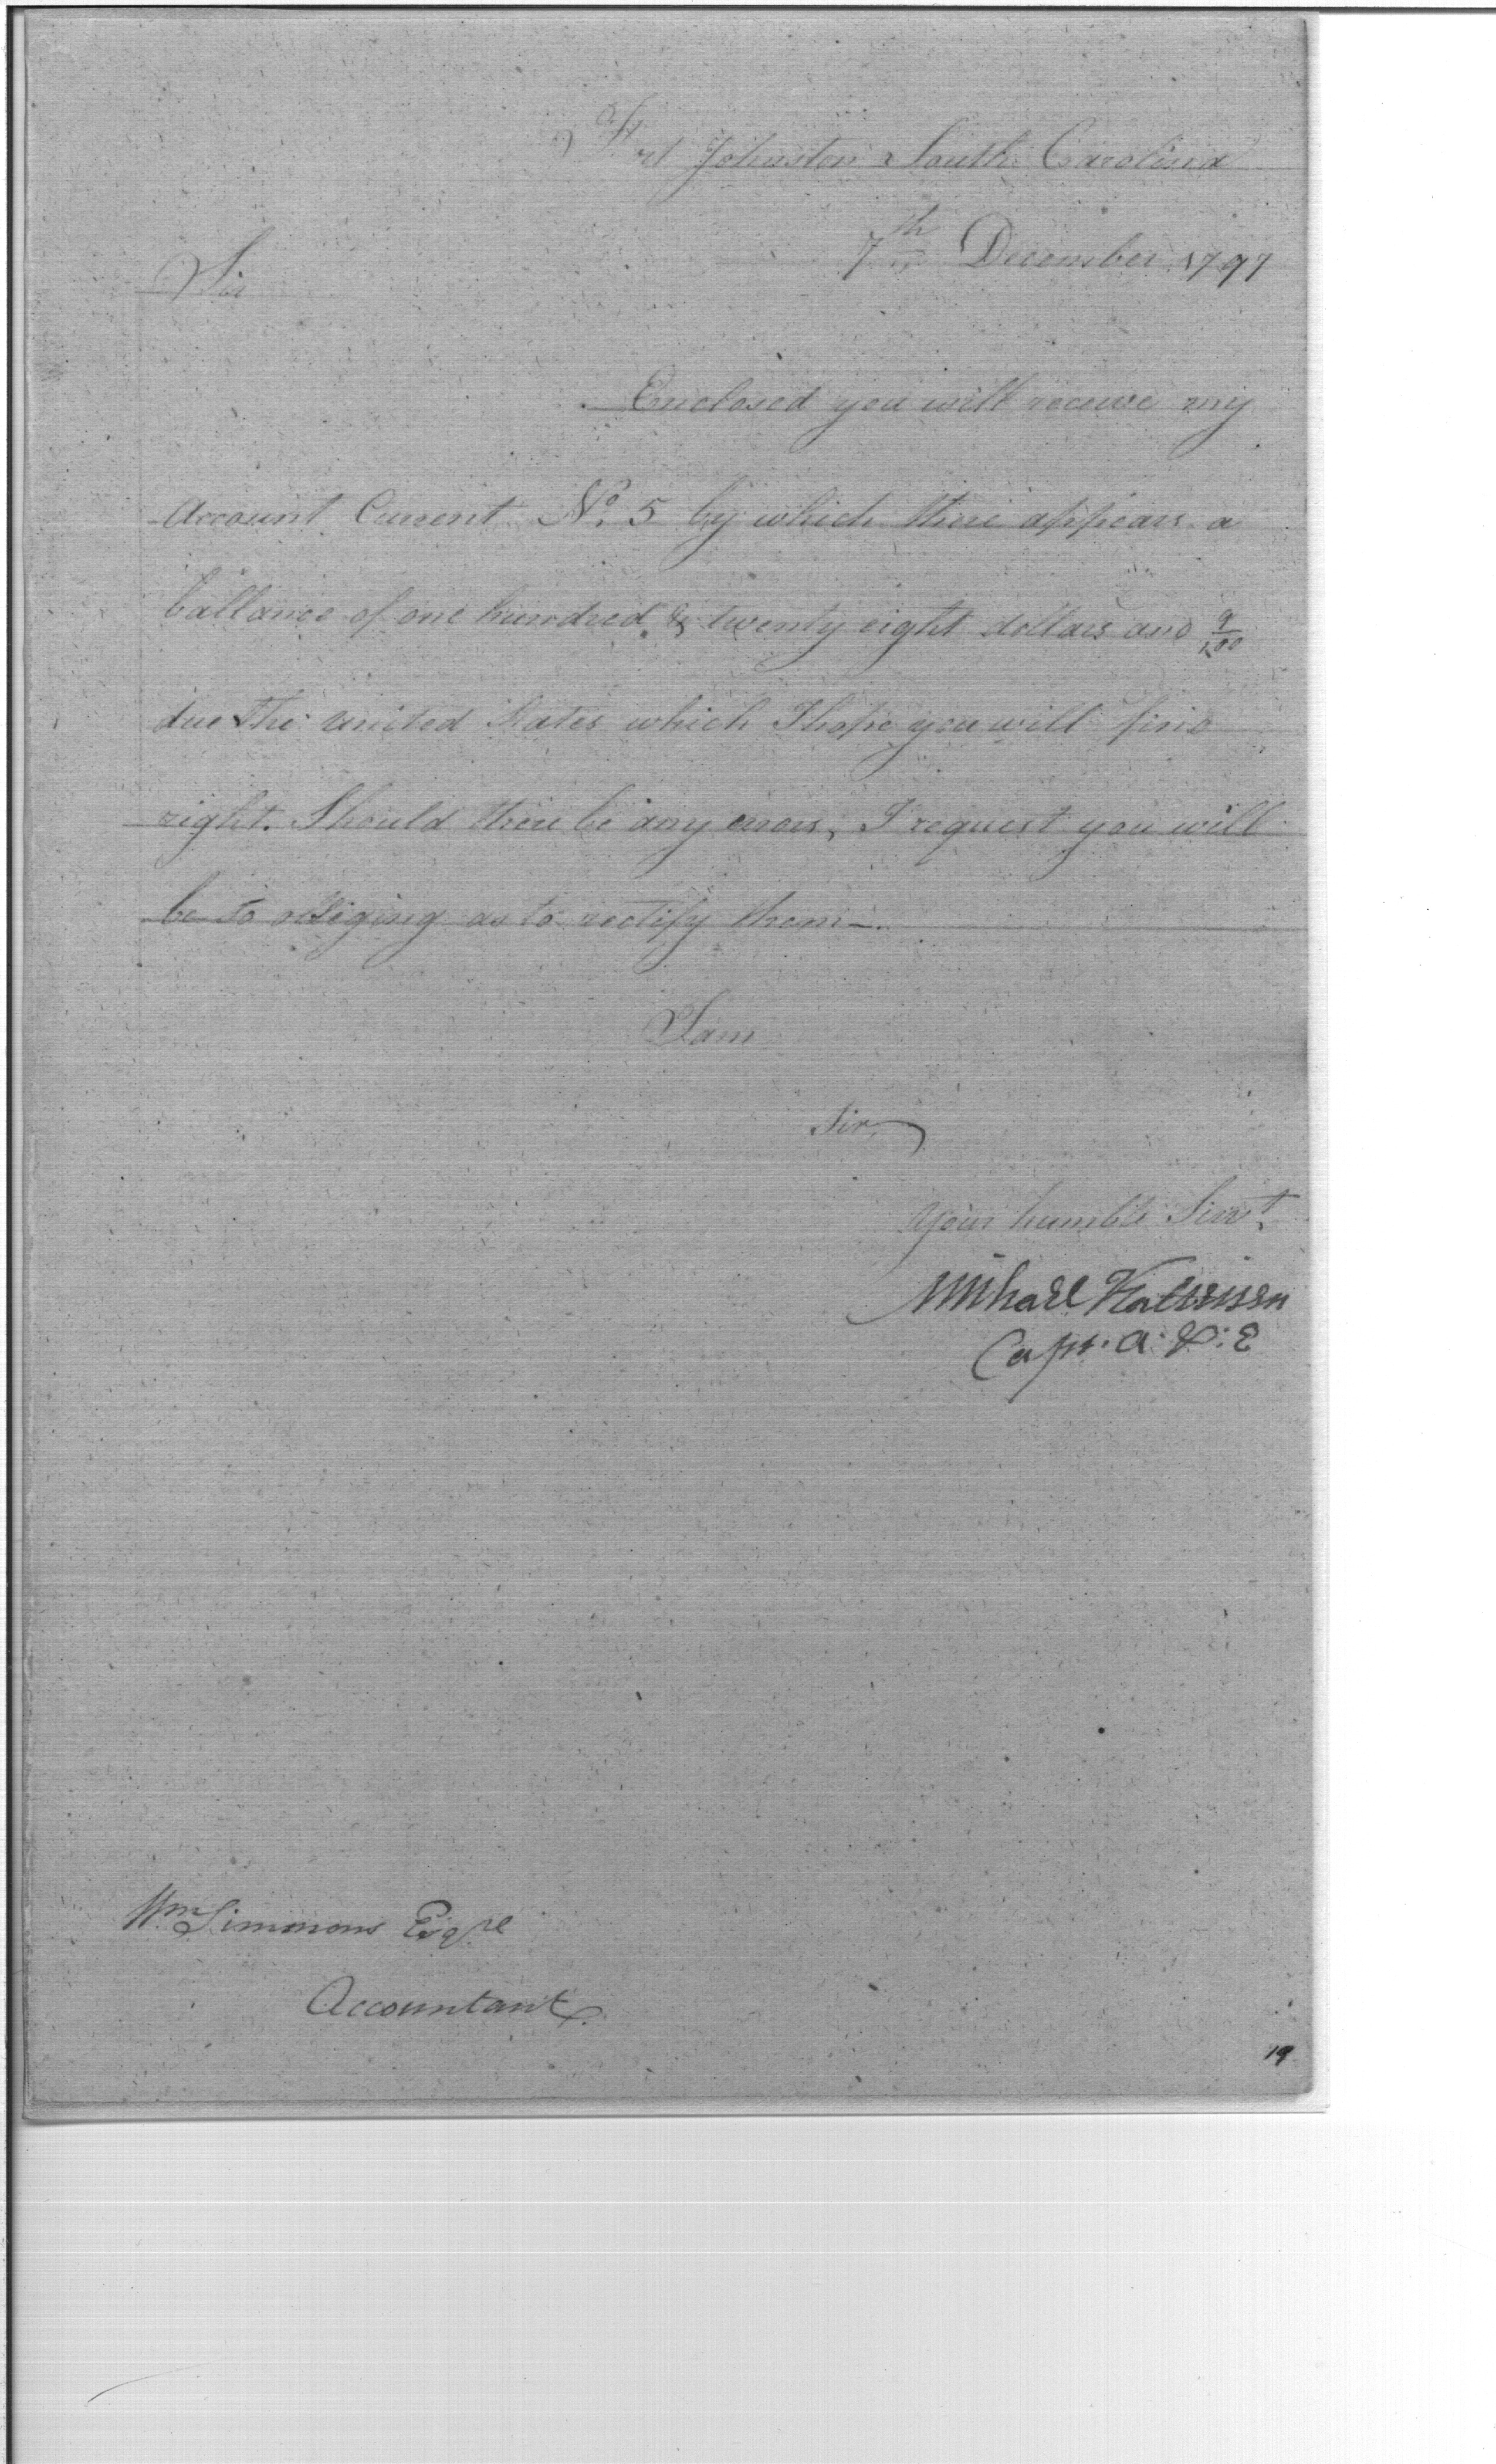 Fort Johnston South Carolina
7th December 1797
Sir
Enclosed you will receive my
Account Current No. 5 by which there appears a
ballance of one hundred & twenty eight dollars and 9/100
due the United States which I hope you will find
right. Should there be any errors, I request you will
be so obliging as to rectify them—.
I am
Sir
Your humble Servt.
Michael Kalteisen
Capt. A: & : E
Wm Simmons Esqre
Accountant
19